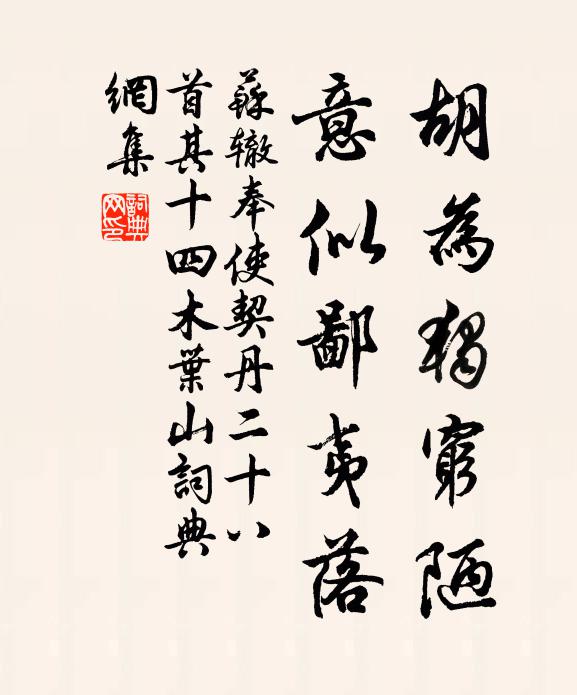 胡為獨窮陋
意似鄙夷落
蘇轍奉使契丹二十八
首其十四木葉山詞典
網集
詞典
网印